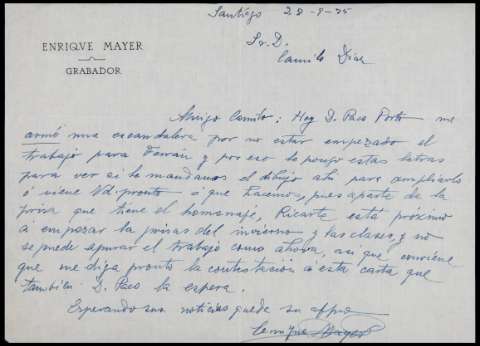 Santiago 28-9-35
ENRIQVE MAYER
GRABADOR
Sr. D.
Camilo Diaz
Amigo Camilo: Hoy D. Paco Porto me
armó una escandalera por no estar empezado el
trabajo para Ferrán y por eso le pongo estas letras
para ver si le mandamos el dibujo ahi para ampliarlo
ó viene Vd. pronto ó que hacemos, pues aparte de la
prisa que tiene el homenaje, Ricarte está próximo
á empezar la prisas del invierno y las clases, y no
se puede apurar el trabajo como ahora, asi que conviene
que me diga pronto la contestación a esta carta que
tambien D. Paco la espera.
Esperando sus noticias queda su affmo
Enrique Mayer